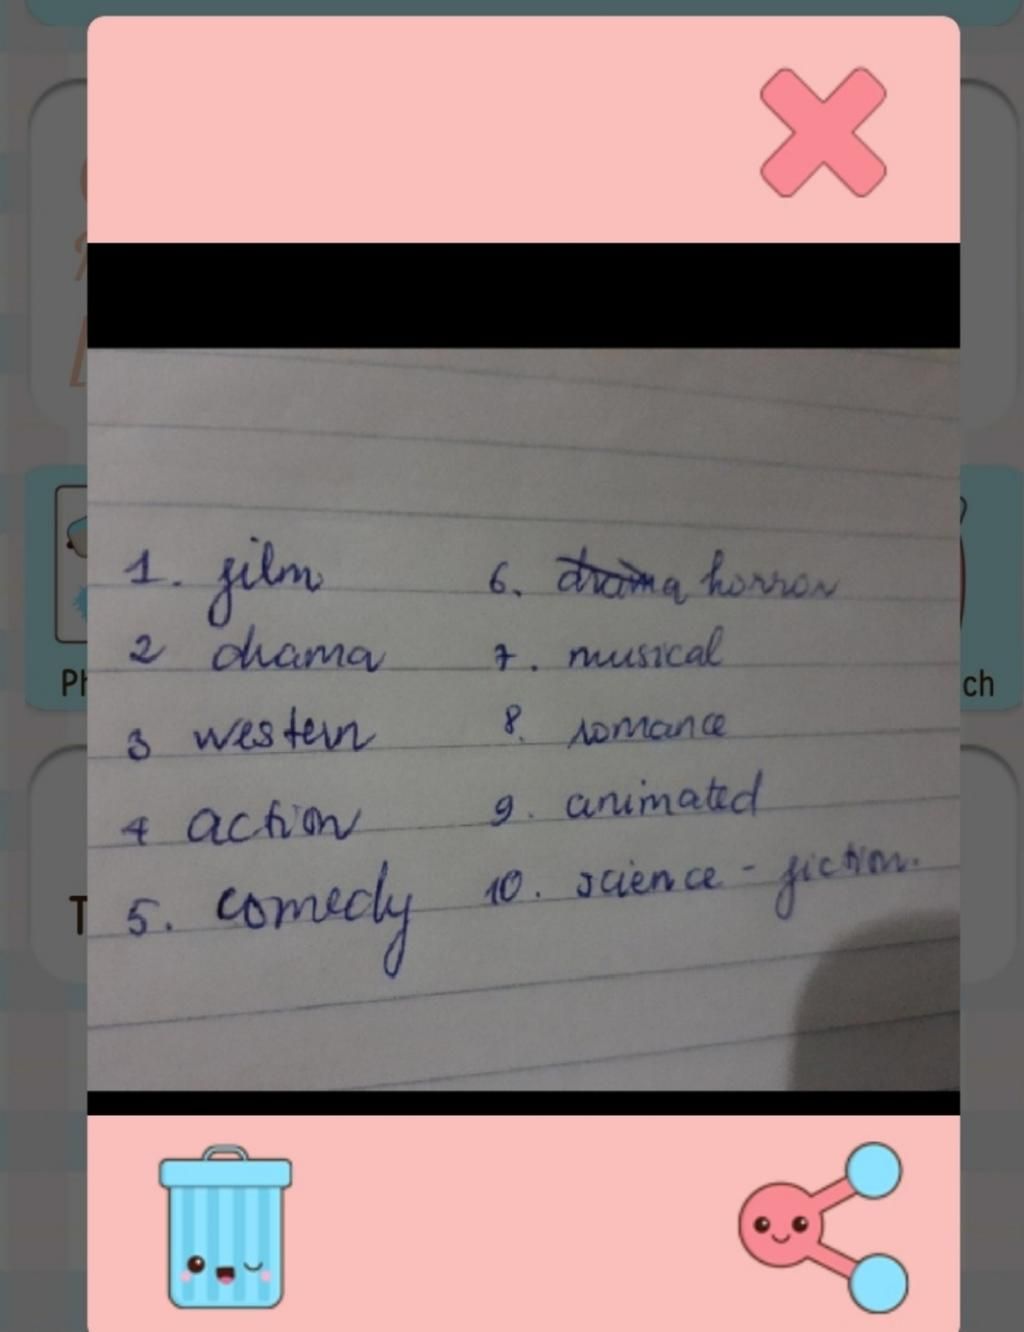 1. film
2 drama
3 western
4 action
5. comedy
6. drama horror
7. musical
8. romance
9. animated
10. science - fiction.
Ph
ch
T